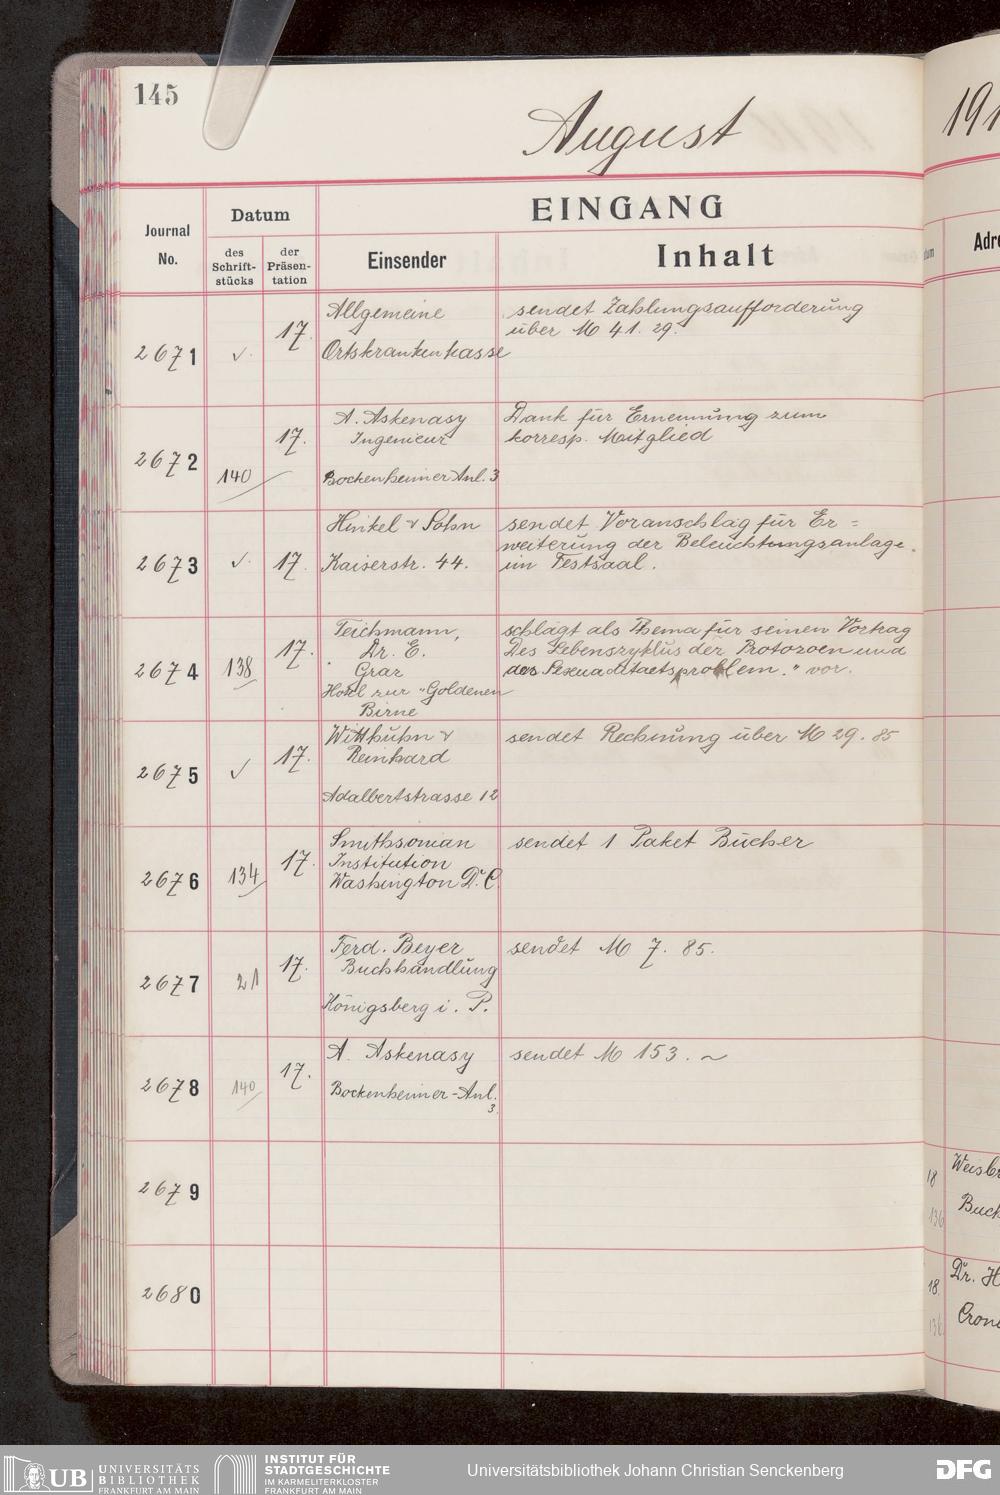 145
August
191
Journal
No.
Datum
des
Schrift-
stücks
der
Präsen-
tation
EINGANG
Einsender
Inhalt
Adre
2671
17.
Allgemeine
Ortskrankenkasse
sendet Zahlungsaufforderung
über M 41. 29.
2672
140
17.
A. Askenasy
Ingenieur
Bockenheimer Anl. 3
Dank für Ernennung zum
korresp. Mitglied
2673
17.
Hinkel & Sohn
Kaiserstr. 44.
sendet Voranschlag für Er=
weiterung der Beleuchtungsanlage
im Festsaal.
2674
138
17.
Teichmann,
Dr. E.
Graz
Hotel zur "Goldenen
Birne
schlägt als Thema für seinen Vortrag
Des Lebenszyklus der Protozoen und
das Sexualitaetsproblem." vor.
2675
17.
Wittkuhn &
Reinhard
Adalbertstrasse 12
sendet Rechnung über M 29. 85
2676
134
17.
Smithsonian
Institution
Washington D. C.
sendet 1 Paket Bücher
2677
21
17.
Ferd. Beyer
Buchhandlung
Königsberg i. P.
sendet M 7. 85.
2678
140
17.
A. Askenasy
Bockenheimer-Anl.
3.
sendet M 153. ~
2679
18
136
Buch
2680
18.
136
Dr. H
UB
UNIVERSITÄTS
BIBLIOTHEK
FRANKFURT AM MAIN
INSTITUT FÜR
STADTGESCHICHTE
IM KARMELITERKLOSTER
FRANKFURT AM MAIN
Universitätsbibliothek Johann Christian Senckenberg
DFG